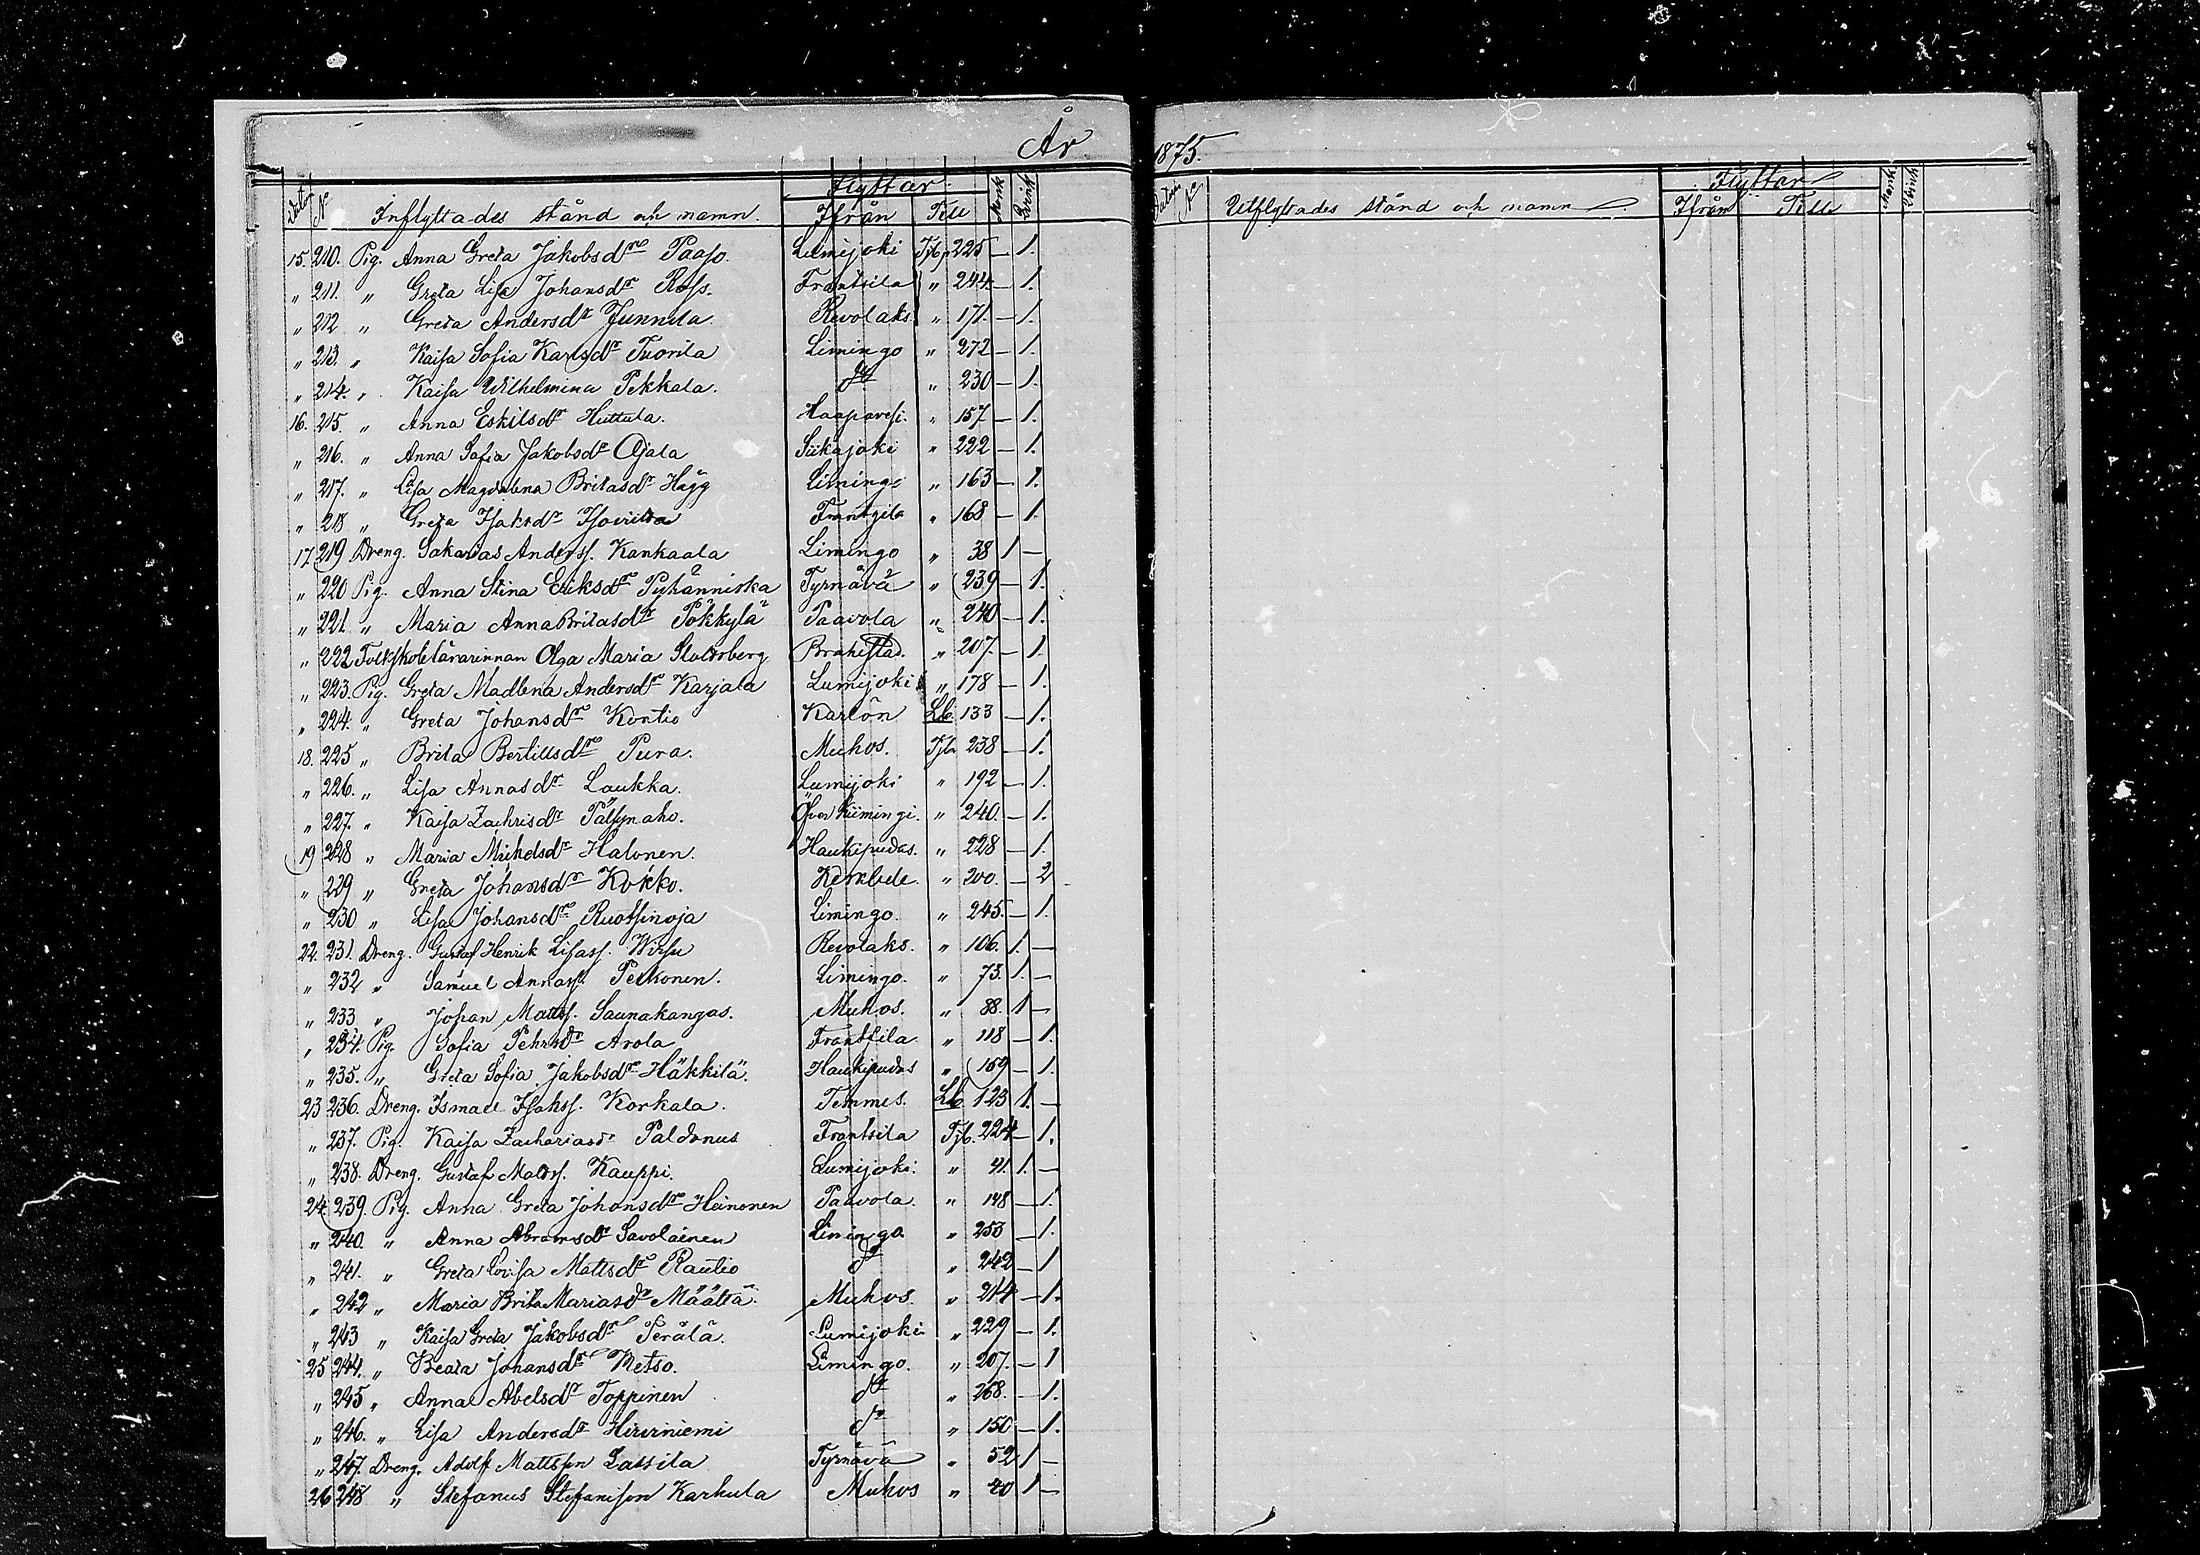 År 1875.
Datum N:o Inflyttades stånd och namn. Flyttar Ifrån Till Mank. Qvink.
Datum N:o Utflyttades stånd och namn Flyttar Ifrån Till Mank. Qvink.
15. 210. Pig. Anna Greta Jakobsdr Paaso. Lumijoki Tjb p 225 — 1.
„ 211. „ Greta Lisa Johansdr Ross. Frantsila „ 244 — 1.
„ 212 „ Greta Andersdr Junnila. Revolaks „ 171. — 1.
„ 213. „ Kaisa Sofia Karlsdr Tuorila Limingo „ 272 — 1.
„ 214. „ Kaisa Wilhelmina Pekkala. do „ 230 — 1.
16. 215. „ Anna Eskilsdr Huttula. Haapavesi. „ 157 — 1.
„ 216. „ Anna Sofia Jakobsdr Ojala Siikajoki „ 222 — 1.
„ 217. „ Lisa Magdalena Britasdr Hägg Limingo „ 163 — 1.
„ 218 „ Greta Isaksdr Frantsila „ 168 — 1.
17 219 Dreng. Sakarias Anderss. Kankaala Limingo „ 38 1 —
„ 220 Pig. Anna Stina Eriksdr Pyhänniska Tyrnävä „ 239 — 1.
„ 221. „ Maria Anna Britasdr Pökkylä Paavola „ 240 — 1.
„ 222 Folkskolelärarinnan Olga Maria Brahestad. „ 207. — 1.
„ 223. Pig. Greta Madlena Andersdr Karjala Lumijoki „ 178 — 1.
„ 224. „ Greta Johansdr Kontio Karlön Lb. 133 — 1.
18. 225 „ Brita Bertillsdr Pura. Muhos. Tjb. 238 — 1.
„ 226. „ Lisa Annasdr Laukka. Lumijoki „ 192 — 1.
„ 227. „ Kaisa Zachrisdr Pälsynaho. Öfver Kiimingi. „ 240. — 1.
19 228 „ Maria Mickelsdr Halonen. Haukipudas. „ 228 — 1.
„ 229 „ Greta Johansdr Kokko. Kempele. „ 200. — 2
„ 230 „ Lisa Johansdr Ruotsinoja Limingo. „ 245. — 1.
22. 231. Dreng. Gustaf Henrik Lisass. Wirsu Revolaks. „ 106. 1. —
„ 232 „ Samuel Annass. Pelkonen. Limingo. „ 73. 1. —
„ 233 „ Johan Matss. Saunakangas. Muhos. „ 88. 1 —
„ 234. Pig. Sofia Pehrsdr Arola Frantsila. „ 118 — 1.
„ 235. „ Greta Sofia Jakobsdr Häkkilä. Haukipudas „ 169 — 1.
23 236. Dreng. Ismael Isakss. Korkala. Temmes. Lb. 123 1. —
„ 237. Pig. Kaisa Zachariasdr Paldanus Frantsila Tjb. 224 — 1.
„ 238. Dreng. Gustaf Matss. Kauppi. Lumijoki. „ 41. 1. —
24. 239. Pig. Anna Greta Johansdr Heinonen Paavola. „ 148 — 1.
„ 240. „ Anna Abramsdr Savolainen Limingo. „ 253 — 1.
„ 241. „ Greta Lovisa Mattsdr Rautio do „ 242 — 1
„ 242 „ Maria Brita Mariasdr Määttä. Muhos. „ 214 — 1.
„ 243 „ Kaisa Greta Jakobsdr Perälä. Lumijoki. „ 229 — 1.
25 244. „ Beata Johansdr Metso. Limingo. „ 207. — 1
„ 245 „ Anna Abelsdr Toppinen do „ 268. — 1.
„ 246. „ Lisa Andersdr Hirviniemi do „ 150 — 1.
„ 247. Dreng. Adolf Mattsson Lassila Tyrnävä „ 52 1 —
26 248 „ Stefanus Stefansson Karhula Muhos „ 40 1 —